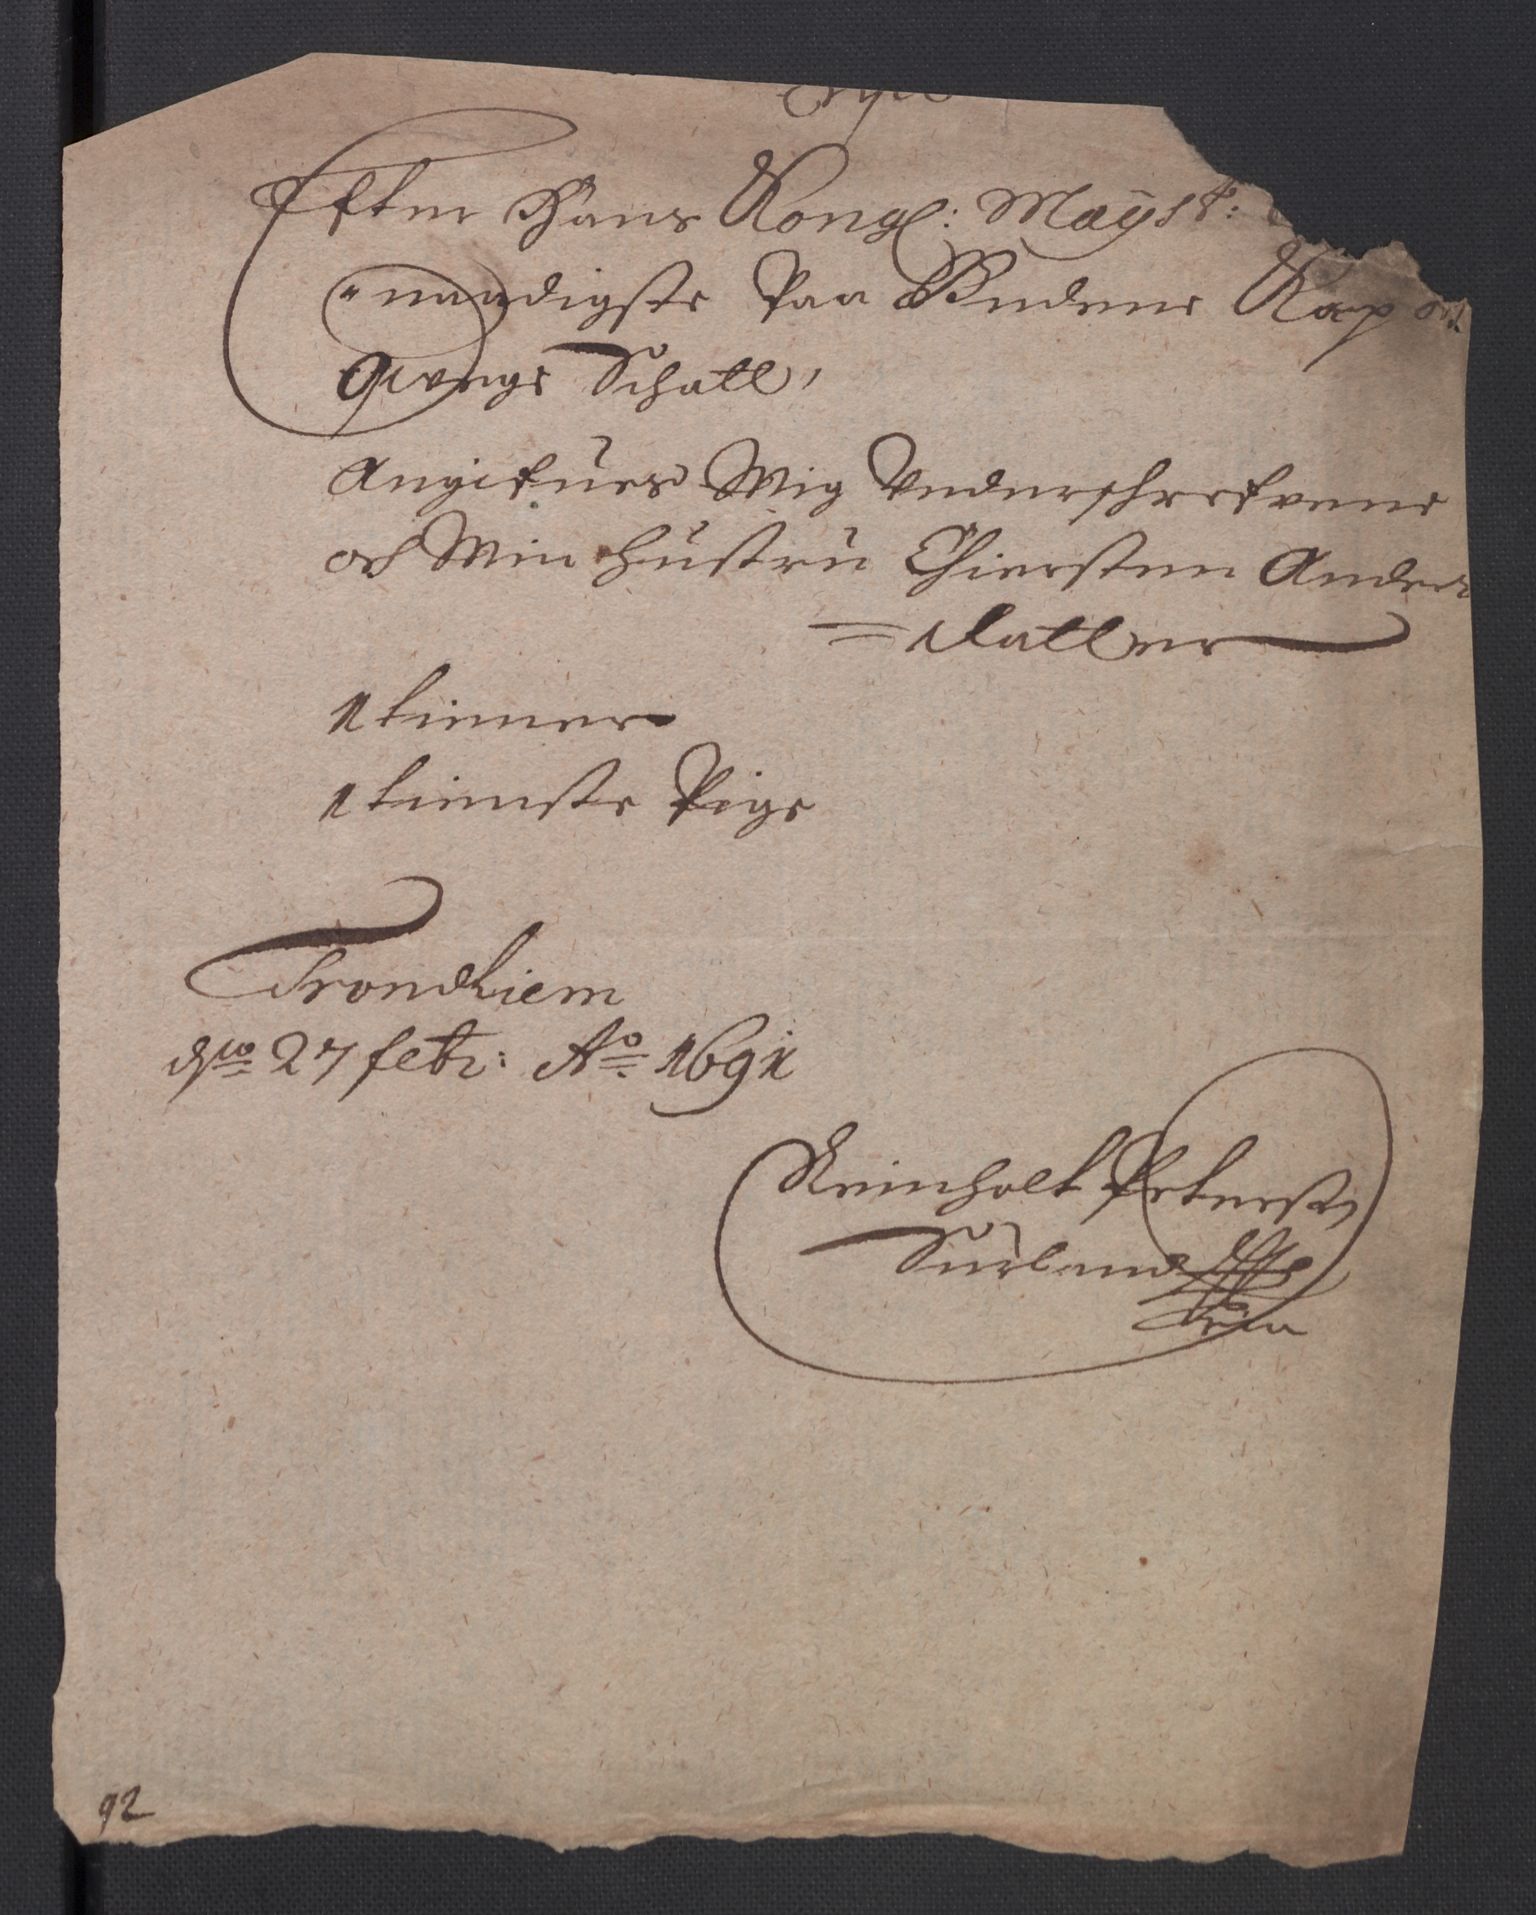 Efter Hans Kongl: Mayst:
naadigste Paa Budene Kap och
Qvegs Schatt,
Angifues Mig Underschrefvene
och Min Hustru Chiersten Anders
= datter
1 tienner
1 tienste Pige
Trondhiem
dto 27 febr: Ao 1691
Reinholt Peters
Surland
92